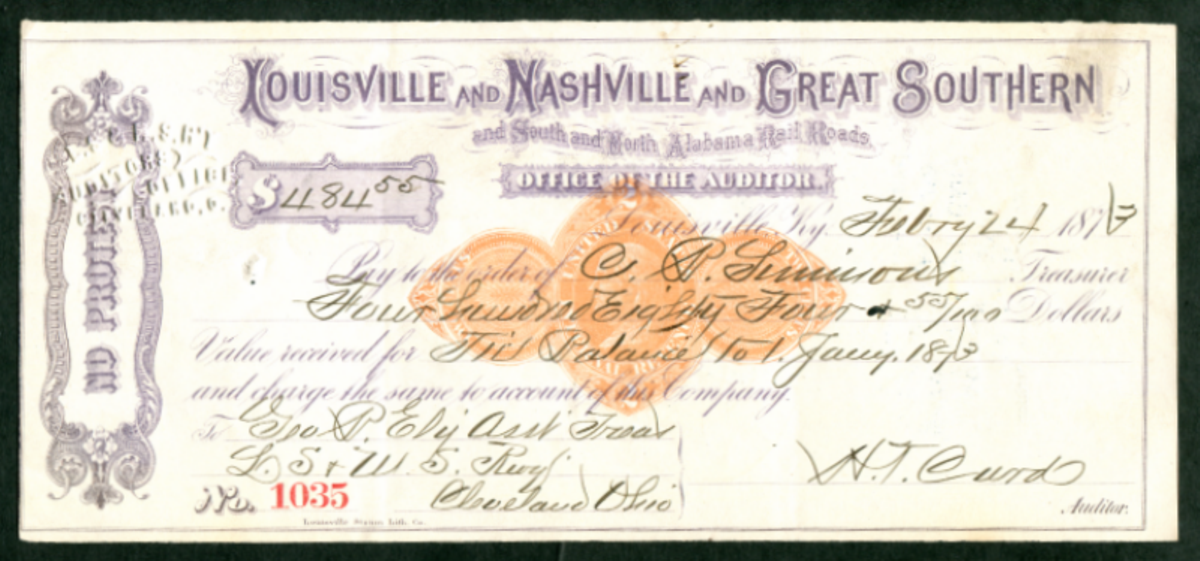 LOUISVILLE AND NASHVILLE AND GREAT SOUTHERN
and South and North Alabama Rail Roads,
OFFICE OF THE AUDITOR.
$484 55
Louisville Ky. Febry 24 1873
Pay to the order of C. P. Treasurer
Four Hundred Eighty Four & 55/100 Dollars
Value received for Tkt Balance to 1. Jany. 1873
and charge the same to account of this Company.
To Geo P. Ely Asst Treas
L. S & M. S. Rwy.
Cleveland Ohio
No. 1035
H. T. Curd
Auditor.
Louisville Steam Lith. Co.
NO PROTEST
AUDITORS OFFICE
CLEVELAND, O.